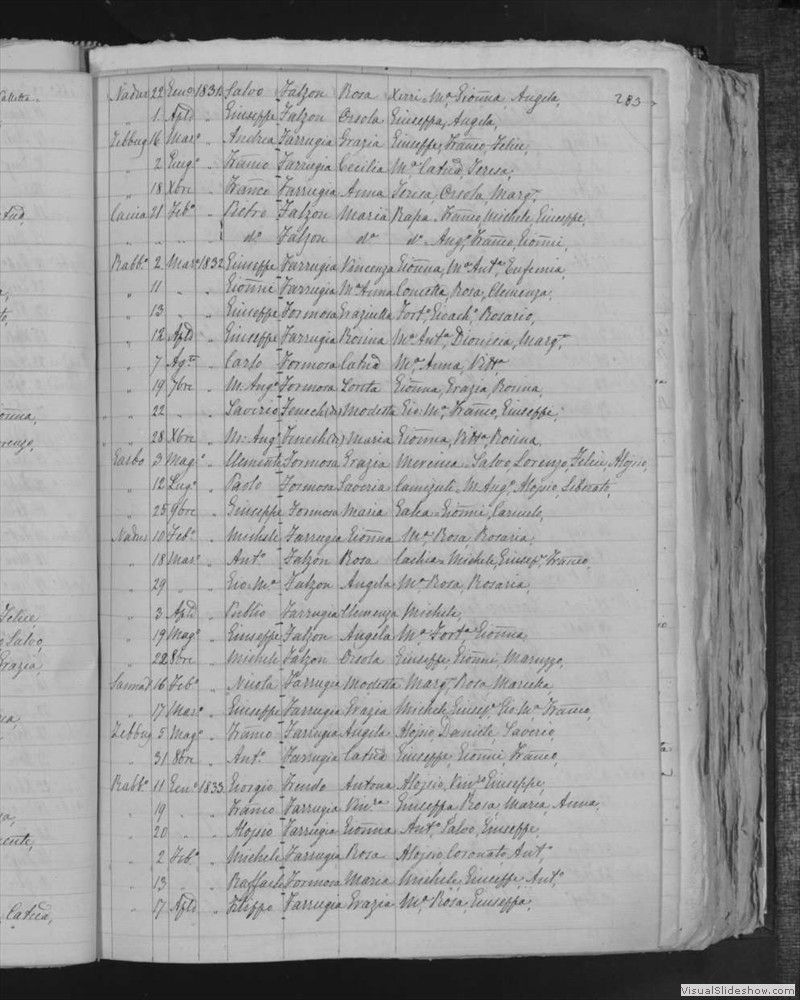 Nadur 22 Genº 1831 Salvo Falzon Rosa Xiri - Mª Gionna, Angela, 283
" 1 Aple " Giuseppe Falzon Orsola Giuseppa, Angela,
Zebbug 16 Marº " Andrea Farrugia Grazia Giuseppe, Franco, Felice,
" 2 Giugº " Franco Farrugia Cecilia Mª Catña, Teresa,
" 18 Xbre " Franco Farrugia Anna Teresa, Orsola, Margt,
Caccia 21 Febº " Pietro Falzon Maria Rapa - Franco, Michele, Giuseppe,
" " " " dº Falzon dª dº Angº, Franco, Gionni,
Rabbº 2 Marº 1832 Giuseppe Farrugia Vincenza Gionna, Mª Antª, Eufemia,
" 11 " " Gionni Farrugia Mª Anna Concetta, Rosa, Clemenza,
" 13 " " Giuseppe Formosa Graziulla Fortº, Gioachº, Rosario,
" 12 Aple " Giuseppe Farrugia Rosina Mª Antª, Dionisia, Margt,
" 7 Agto " Carlo Formosa Catña Mª, Anna, Vittª
" 19 7bre " M. Angº Formosa Loreta Gionna, Grazia, Rosina,
" 22 " " Saverio Fenech Modesta Gio: Mª, Franco, Giuseppe,
" 28 Xbre " M: Angº Fenech Maria Gionna, Vittª, Rosina,
Garbo 3 Magº " Clemente Formosa Grazia Salvo, Lorenzo, Felice, Aloisio,
" 12 Lugº " Paolo Formosa Saveria Camizuli - M. Angº, Aloisio, Liberato,
" 25 9bre " Giuseppe Formosa Maria Galea - Gionni, Carmelo,
Nadur 10 Febº " Michele Farrugia Gionna Mª Rosa, Rosaria,
" 18 Marº " Antº Falzon Rosa Michele, Giusepe, Franco,
" 29 " " Gio: Mª Falzon Angela Mª Rosa, Rosaria,
" 3 Aple " Publio Farrugia Clemenza Michele,
" 19 Magº " Giuseppe Falzon Angela Mª Fortª, Gionna,
" 22 8bre " Michele Falzon Orsola Giuseppe, Gionni, Maruzzo,
Sannat 16 Febº " Nicola Farrugia Modesta Margt, Rosa,
" 17 Marº " Giuseppe Farrugia Grazia Michele, Giusepe, Gio: Mª, Franco,
Zebbug 5 Magº " Franco Farrugia Angela Aloisio, Daniele, Saverio,
" 31 8bre " Antº Farrugia Catña Giuseppe, Gionni, Franco,
Rabbº 11 Genº 1833 Giorgio Antona Aloisio, Vinzo, Giuseppe,
" 19 " " Franco Farrugia Vinza Giuseppa, Rosa, Maria, Anna,
" 20 " " Aloisio Farrugia Gionna Antº, Salvo, Giuseppe,
" 2 Febº " Michele Farrugia Rosa Aloisio, Coronato, Antº,
" 13 " " Raffaele Formosa Maria Michele, Giuseppe, Antº,
" 17 Aple " Filippo Farrugia Grazia Mª, Rosa, Giuseppa,
Felice
Salvo,
Grazia,
Catña,
VisualSlideshow.com